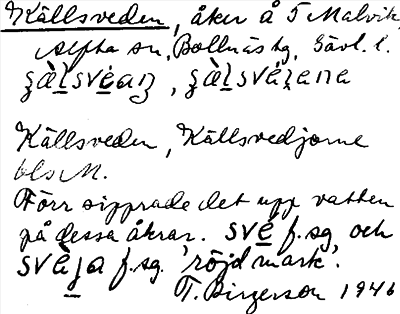 Källsveden, åker å T Malvik,
Alfta sn, Bollnäs tg, Gävl. l.
ʒàl̲své̲an, ʒàl̲své̲ʒana
Källsveden, Källsvedjorne
bls M.
Förr sipprade det upp vatten
på dessa åkrar. své̲ f.sg. och
svè̲ʒa f.sg. 'röjd mark'.
T. Birgerson 1946